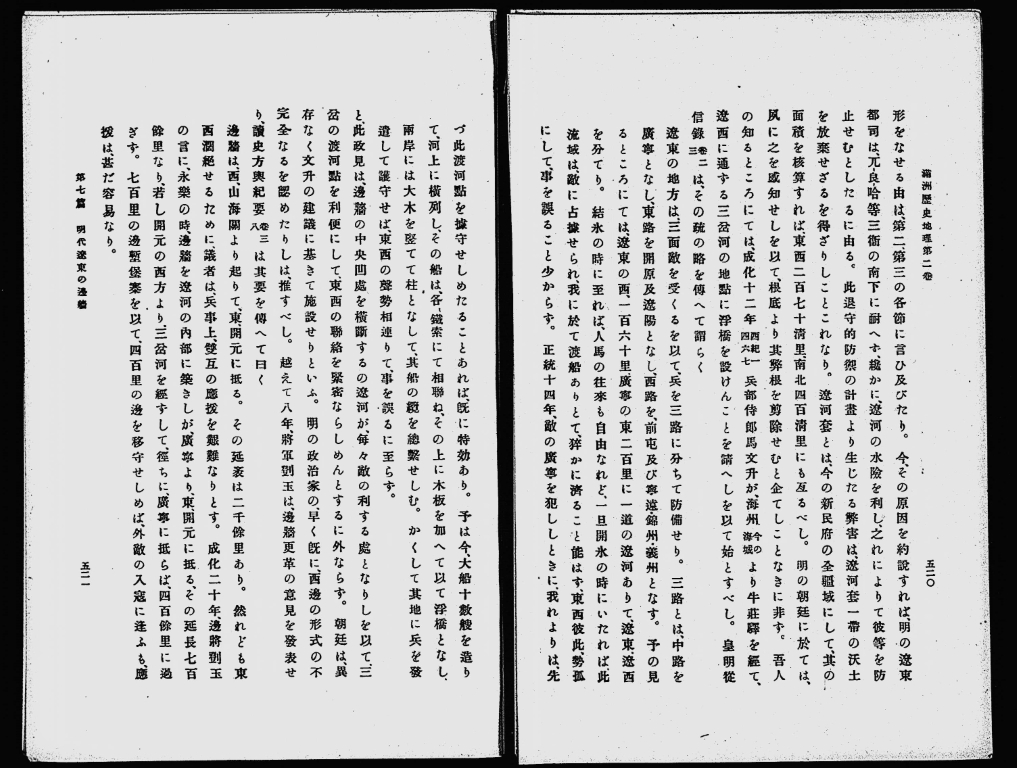 滿洲歷史地理第二卷
五二〇
形をなせる由は、第二、第三の各節に言ひ及びたり。今、その原因を約說すれば明の遼東
都司は、兀良哈等三衞の南下に耐へず、纔かに、遼河の水險を利し、之れによりて彼等を防
止せむとしたるに由る。此退守的防禦の計畫より生じたる弊害は、遼河套一帶の沃土
を放棄せざるを得ざりしことこれなり。遼河套とは、今の新民府の全疆域にして、其の
面積を核算すれば、東西二百七十淸里、南北四百淸里にも亙るべし。明の朝廷に於ては、
夙に之を感知せしを以て、根底より其弊根を剪除せむと企てしことなきに非ず。吾人
の知るところにては、成化十二年西紀一四六七兵部侍郞馬文升が、海州今の海城より牛莊驛を經て、
遼西に通ずる三岔河の地點に浮橋を設けんことを請へしを以て始とすべし。皇明從
信錄卷二三は、その疏の略を傳へて謂らく
遼東の地方は、三面敵を受くるを以て、兵を三路に分ちて防備せり。三路とは、中路を
廣寧となし、東路を開原及遼陽となし、西路を、前屯及び寧遠・錦州・義州となす。予の見
るところにては、遼東の西一百六十里、廣寧の東二百里に一道の遼河ありて、遼東、遼西
を分てり。結氷の時に至れば、人馬の往來も自由なれど、一旦開氷の時にいたれば、此
流域は、敵に占據せられ、我に於て渡船ありとて、猝かに濟ること能はず、東西彼此勢孤
にして、事を誤ること少からず。正統十四年、敵の廣寧を犯ししときに我れよりは、先
づ此渡河點を據守せしめたることあれば、旣に特効あり。予は今、大船十數艘を造り
て、河上に橫列し、その船は、各〻鐵索にて相聯ね、その上に木板を加へて以て浮橋となし、
兩岸には大木を竪てて柱となして、其船の纜を總繫せしむ。かくして其地に兵を發
遣して護守せば、東西の聲勢相連りて、事を誤るに至らず。
と、此政見は、邊牆の中央凹處を橫斷するの遼河が、每々敵の利する處となりしを以て、三
岔の渡河點を利便にして、東西の聯絡を緊密ならしめんとするに外ならず。朝廷は、異
存なく文升の建議に基きて施設せりといふ。明の政治家の早く旣に、西邊の形式の不
完全なるを認めたりしは、推すべし。越えて八年、將軍劉玉は、邊牆更革の意見を發表せ
り、讀史方輿紀要卷三八は其要を傳へて曰く
邊牆は、西、山海關より起りて、東、開元に抵る。その延袤は二千餘里あり。然れども東
西濶絕せるために、議者は、兵事上、雙互の應援を艱難なりとす。成化二十年、邊將劉玉
の言に、永樂の時、邊牆を遼河の內部に築きしが廣寧より、東開元に抵る、その延長七百
餘里なり、若し開元の西方より三岔河を經ずして、徑ちに、廣寧に抵らば四百餘里に過
ぎず。七百里の邊塹堡寨を以て、四百里の邊を移守せしめば、外敵の入寇に逢ふも、應
援は、甚だ容易なり。
第七篇　明代遼東の邊牆
五二一